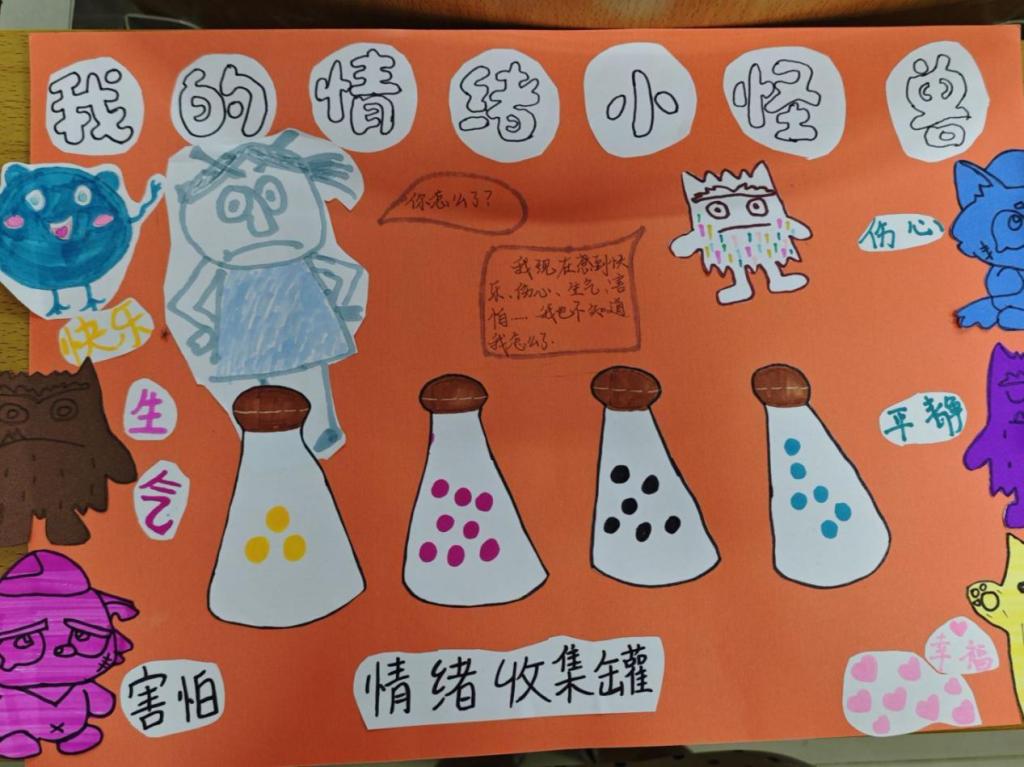 我的情绪小怪兽
你怎么了?
我现在感到快
乐、伤心、生气、害
怕…… 我也不知道
我怎么了.
伤心
快乐
生
气
平静
幸福
害怕
情绪收集罐